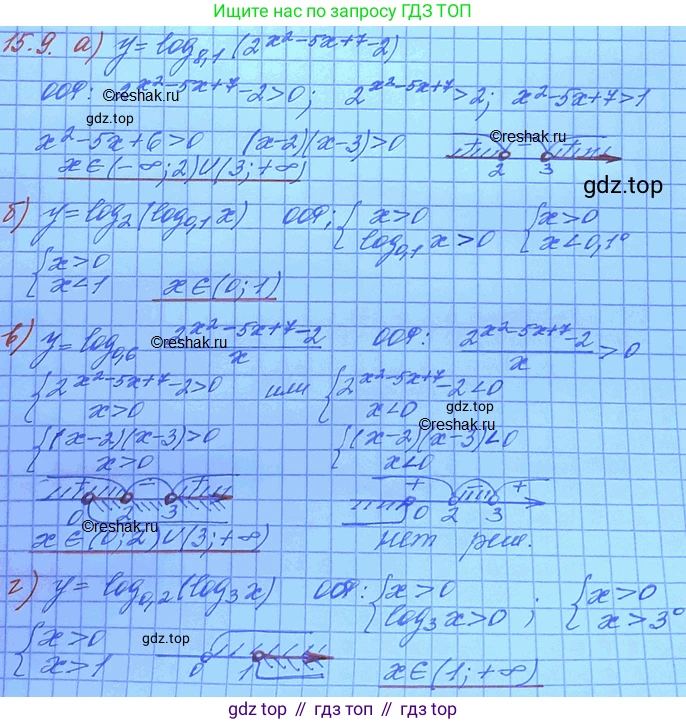 Ищите нас по запросу ГДЗ ТОП
15.9. а) y = log₀,₁ (2^(x²-5x+7) - 2)
ООФ: 2^(x²-5x+7) - 2 > 0; 2^(x²-5x+7) > 2; x²-5x+7 > 1
©reshak.ru
gdz.top
x²-5x+6 > 0 (x-2)(x-3) > 0 + - + 2 3
©reshak.ru
x ∈ (-∞; 2) ∪ (3; +∞)
gdz.top
б) y = log₂ (log₀,₁ x) ООФ: { x > 0 { x > 0
log₀,₁ x > 0 x < 0,1⁰
{ x > 0
x < 1 x ∈ (0; 1)
в) y = log₀,₆ (2^(x²-5x+7) - 2)/x ООФ: (2^(x²-5x+7) - 2)/x > 0
©reshak.ru
{ 2^(x²-5x+7) - 2 > 0 или { 2^(x²-5x+7) - 2 < 0
x > 0 x < 0
gdz.top
©reshak.ru
{ (x-2)(x-3) > 0 { (x-2)(x-3) < 0
x > 0 x < 0
+ - + + - +
0 2 3 0 2 3
©reshak.ru
x ∈ (0; 2) ∪ (3; +∞) нет реш.
г) y = log₀,₂ (log₃ x) ООФ: { x > 0 ; { x > 0
log₃ x > 0 x > 3⁰
{ x > 0
x > 1 0 1 x ∈ (1; +∞)
gdz.top
gdz.top // гдз.топ // gdz.top